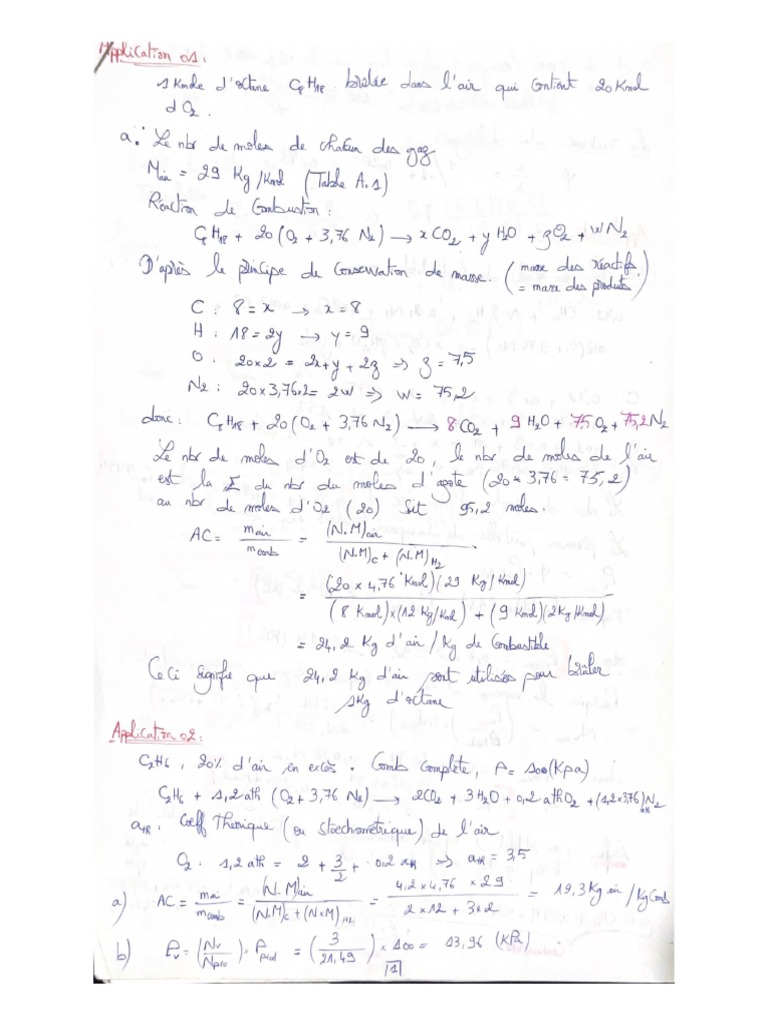 Application 01:
1 Kmole d'octane C8H18 brulée dans l'air qui contient 20 Kmol
d O2.
a. Le nbr de moles de chacun des gaz
Mair = 29 Kg/Kmol (Table A.1)
Réaction de Combustion:
C8H18 + 20 (O2 + 3,76 N2) → x CO2 + y H2O + z O2 + w N2
D'après le principe de conservation de masse. (masse des réactifs = masse des produits)
C : 8 = x → x = 8
H : 18 = 2y → y = 9
O : 20×2 = 2x + y + 2z ⇒ z = 7,5
N2 : 20×3,76×2 = 2w ⇒ w = 75,2
donc: C8H18 + 20 (O2 + 3,76 N2) → 8CO2 + 9H2O + 7,5 O2 + 75,2 N2
Le nbr de moles d'O2 est de 20, le nbr de moles de l'air
est la Σ du nbr du moles d'azote (20 * 3,76 = 75,2)
au nbr de moles d'O2 (20) Soit 95,2 moles.
AC = mair / mcomb = (N.M)air / (N.M)C + (N.M)H2
= (20 × 4,76 Kmol)(29 Kg/Kmol) / (8 Kmol)×(12 Kg/Kmol) + (9 Kmol)(2Kg/Kmol)
= 24,2 Kg d'air / Kg de Combustible
Ce Ci signifie que 24,2 Kg d'air sont utilisés pour brûler
1Kg d'octane
Application 02:
C2H6, 20% d'air en excès. Comb complète, P = 100 (KPa)
C2H6 + 1,2 ath (O2 + 3,76 N2) → 2CO2 + 3H2O + 0,2 ath O2 + (1,2×3,76) ath N2
ath. Coeff Théorique (ou Stoechiométrique) de l'air
O2. 1,2 ath = 2 + 3/2 + 0,2 ath ⇒ ath = 3,5
a) AC = mair / mcomb = (N.M)air / (N.M)C + (N×M)H2 = 4,2 × 4,76 × 29 / 2 × 12 + 3×2 = 19,3 Kg air / Kg Comb
b) Pv = (Nv / Npro) × Pprod = (3 / 21,49) × 100 = 13,96 (KPa)
1